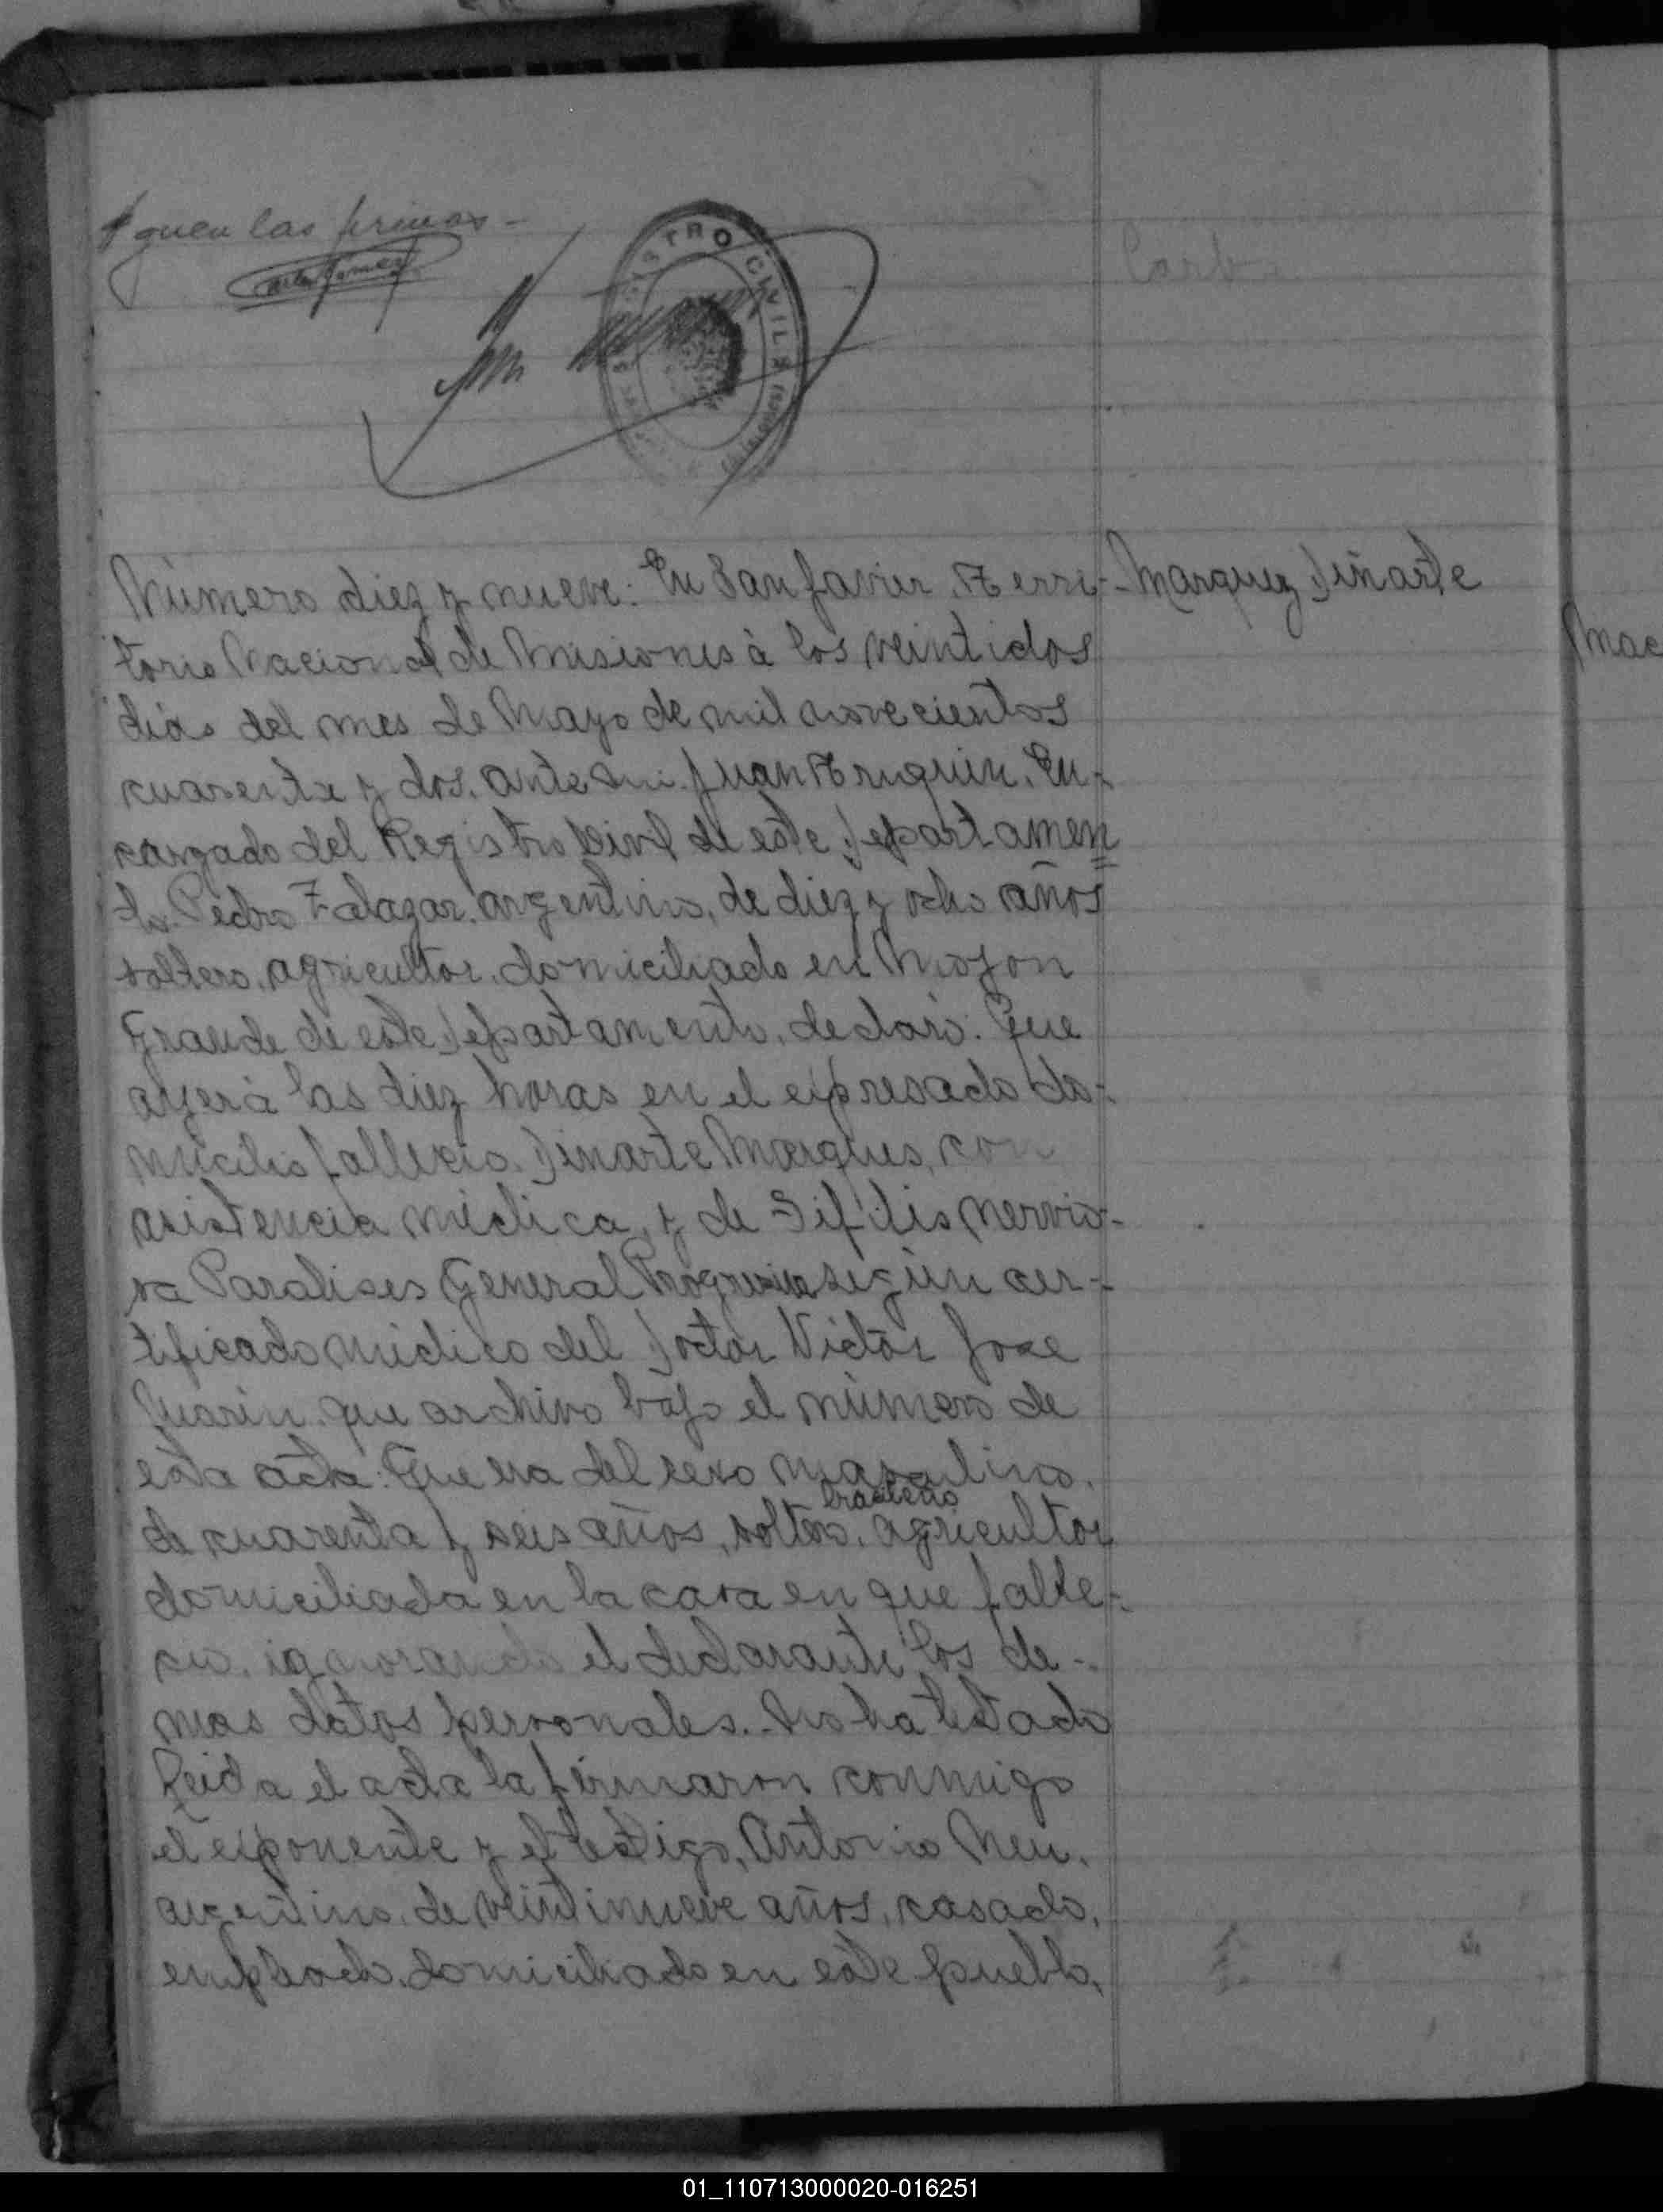 guen las firmas -
REGISTRO CIVIL
Número diez y nueve: En San Javier, Terri-
Marquez Dinarte
torio Nacional de Misiones à los veintidos
dias del mes de Mayo de mil novecientos
cuarenta y dos, ante mi Juan Triquin, En-
cargado del Registro Civil de este Departamen
to. Pedro Zalazar, argentino, de diez y ocho años
soltero, agricultor, domiciliado en Mojon
Grande de este Departamento, declaró: Que
ayer à las diez horas en el expresado do-
micilio fallecio Dinarte Marques, con
asistencia médica, y de Sifilis nervio-
sa Paralises General Progresiva según cer-
tificado médico del Doctor Victor Jose
que archivo bajo el número de
esta acta: Que era del sexo masculino,
brasileño
de cuarenta y seis años, soltero, agricultor
domiciliada en la casa en que falle-
cio, ignorando el declarante los de-
mas datos personales. No ha testado
Leida el acta la firmaron conmigo
el exponente y el testigo, Antonio Neu,
argentino, de veintinueve años, casado,
empleado, domiciliado en este pueblo,
Mac
01_110713000020-016251